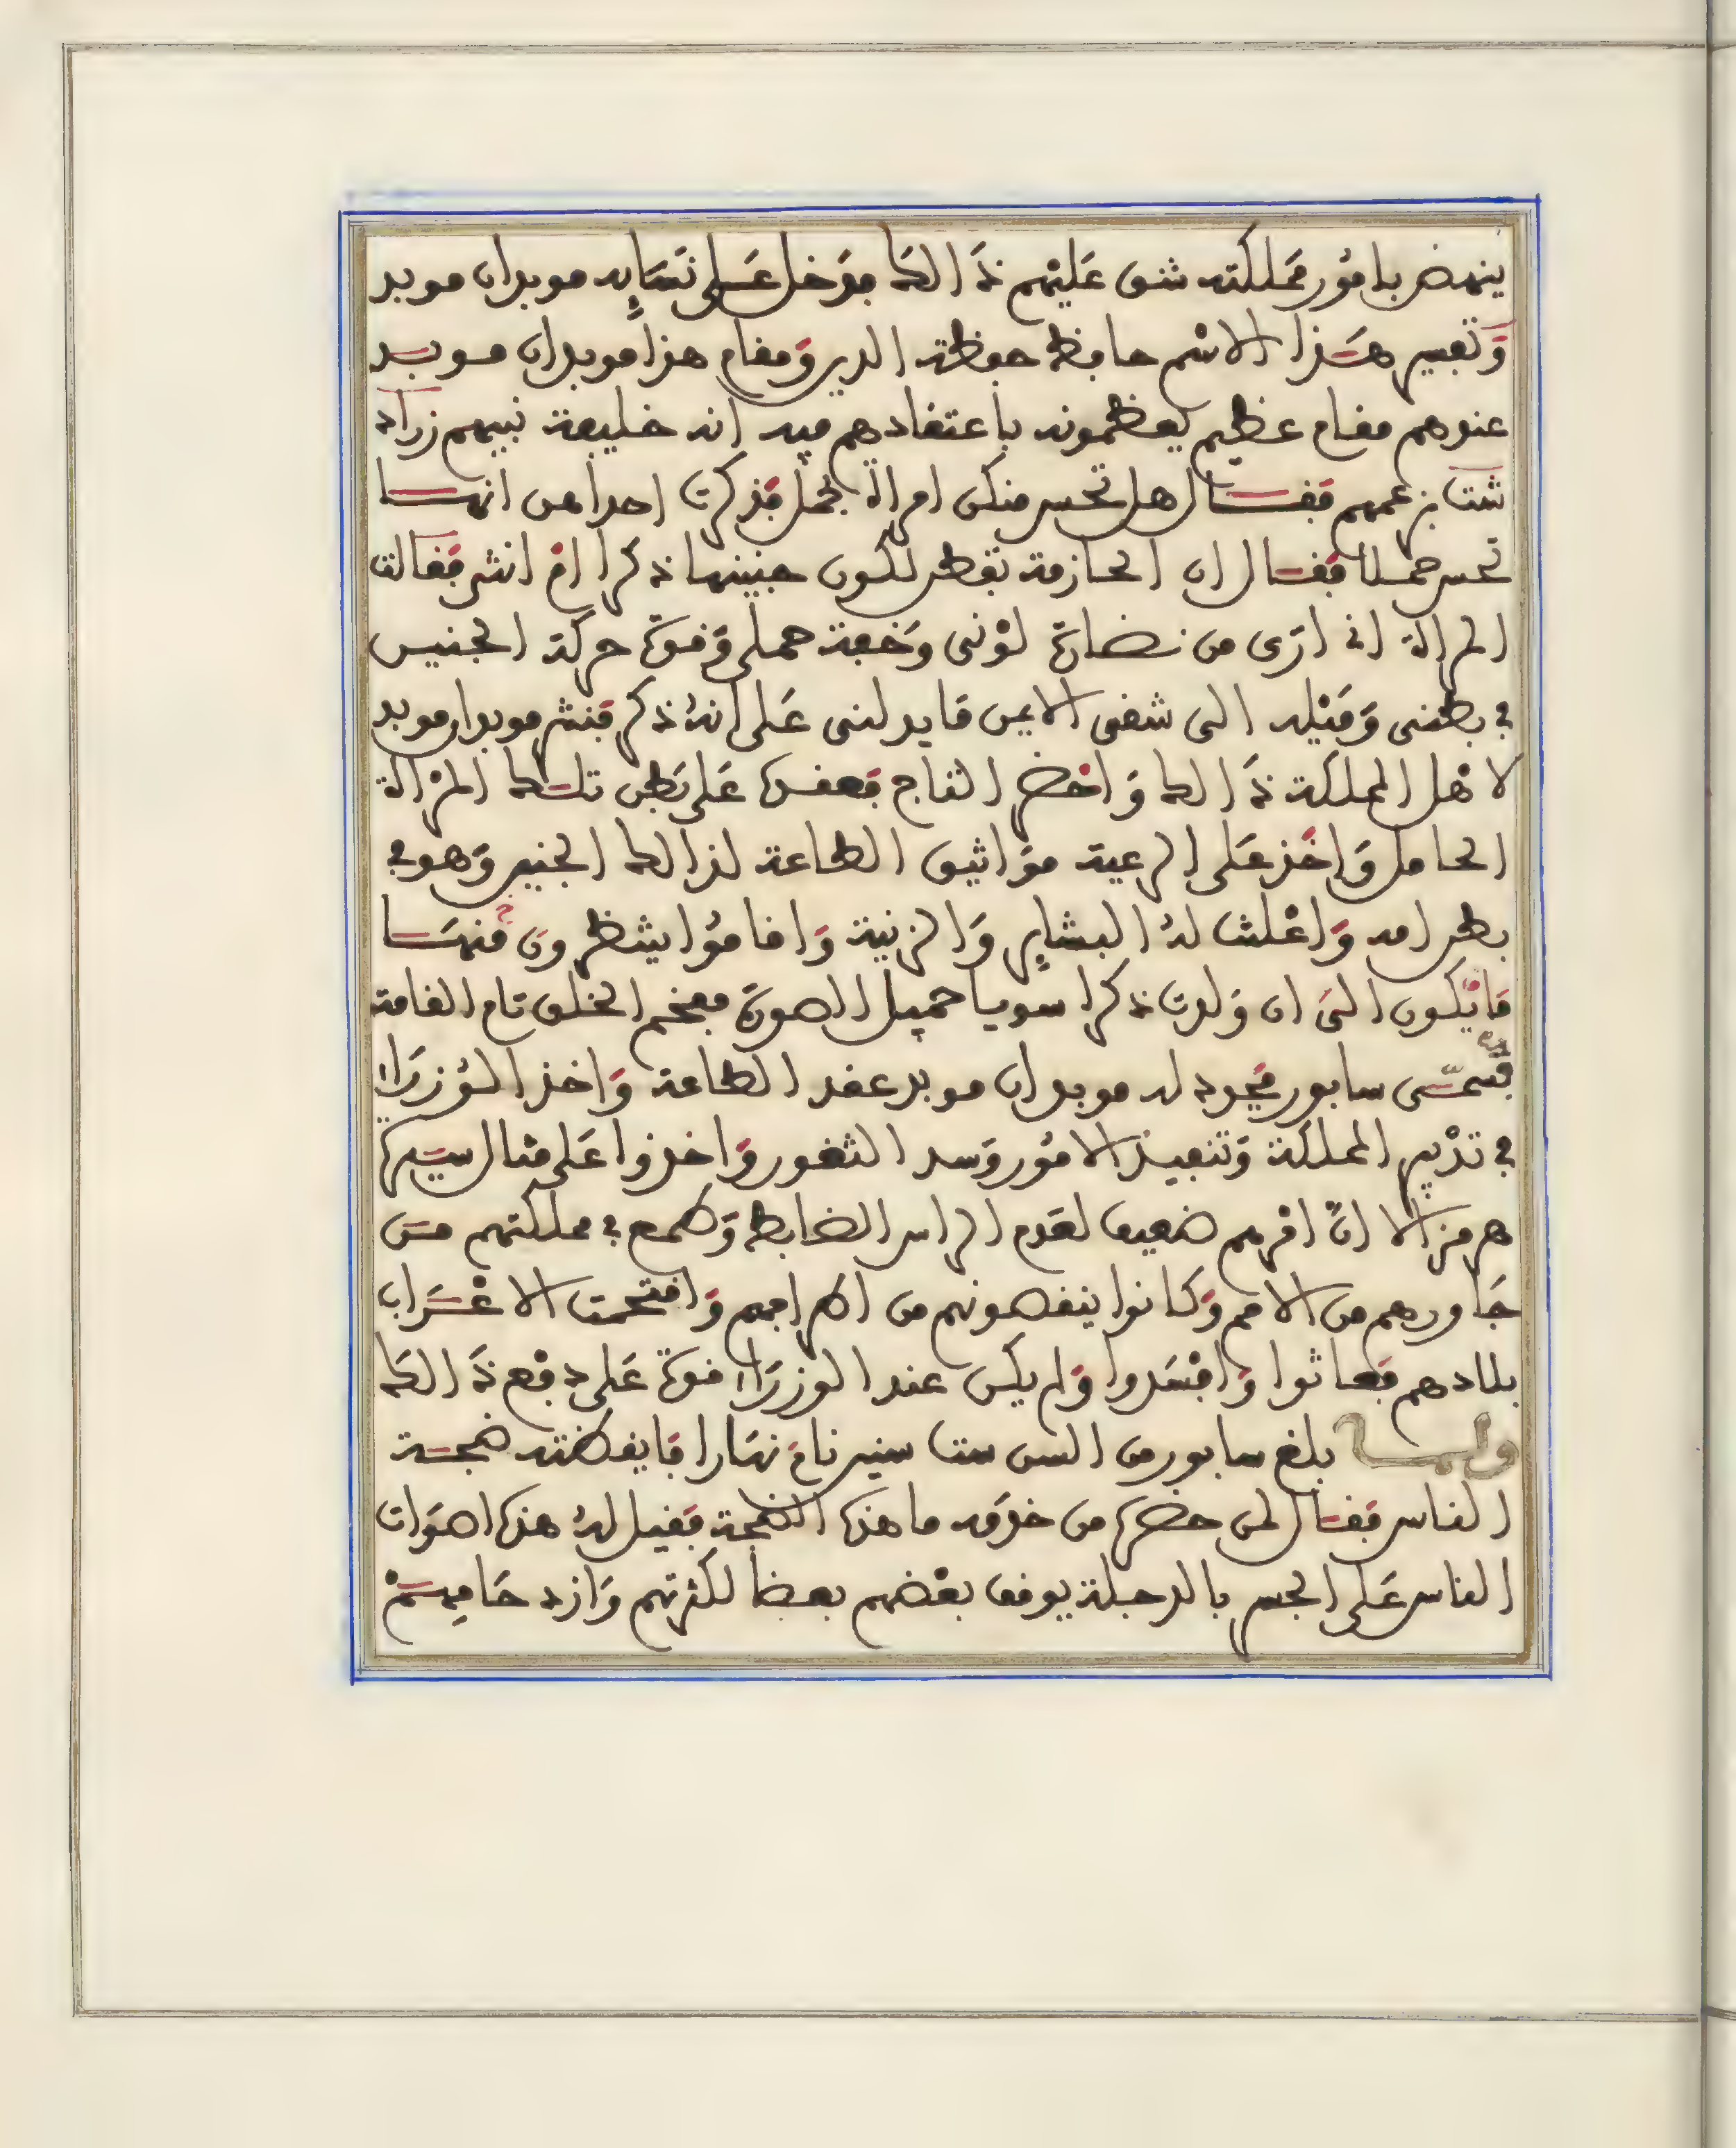 ينهض بامُور مَملكته شق عَليْهم ذَالك فدَخل عَلى نسَايِه موبدان موبد
وَتفسير هَذا الاسْم حافظ حفظة الدين وَمقام هذا موبدان موبد
عندهم مقام عظيم يعظمونه باعتقادهم فيه انه خليفة نبيهم زراد
شت بزعمهم فقال هل تحس منكن امراة بحمل فذكرت احداهن انها
تحس حملا فقال ان الحازمة تفطن لكون جنينها ذكرا امْ انثى فقالت
المراة انى ارَى من نضارة لوْنى وَخفة حملى وَقوة حركة الجنين
في بطنى وَميْله الى شقى الايمن مَا يدلنى عَلى انهُ ذكر فبشر موبدان موبد
لاهْل المملكة ذَالك وَاحْضر التاج فعقده عَلى بَطن تلك المرْاة
الحامل وَاخَذ عَلى الرعية موَاثيق الطاعة لذالك الجنين وَهو في
بطن امه وَاعْلنت لهُ البشايِر وَالزينة وَاقامُوا ينتظرون منهَا
مَا يَكون الىَ ان وَلدت ذكرا سويا جميل الصورة مفخم الخلق تام القامة
فسمّى سابور فجدد له موبدان موبد عقد الطاعة وَاخذ الوُزرَاء
في تدْبير المملكة وَتنفيذ الامُور وَسد الثغور وَاخذوا عَلى مثال سيرة
هرمز الا انَّ امْرهم ضعيف لعَدم الراس الضابط وَطمع في مملكتهم مَن
جَاورهم من الامم وَكانوا ينقصونهم من اطرافهم وَاقتحمت الاعْرَاب
بلادهم فعاثوا وَافسَدوا وَلم يكن عند الوزرَاء قوة عَلى دفْع ذَالك
ولما بلغ سابور من السن ست سنين نامَ نهَارا فايقظته ضجة
الناس فقال لمن حضره من خدَمه ما هذه الضجة فقيل لهُ هذه اصوَات
الناس عَلى الجسر بالدجلة يوقف بعْضهم بعضا لكثرتهم وَازدحَامِهمْ